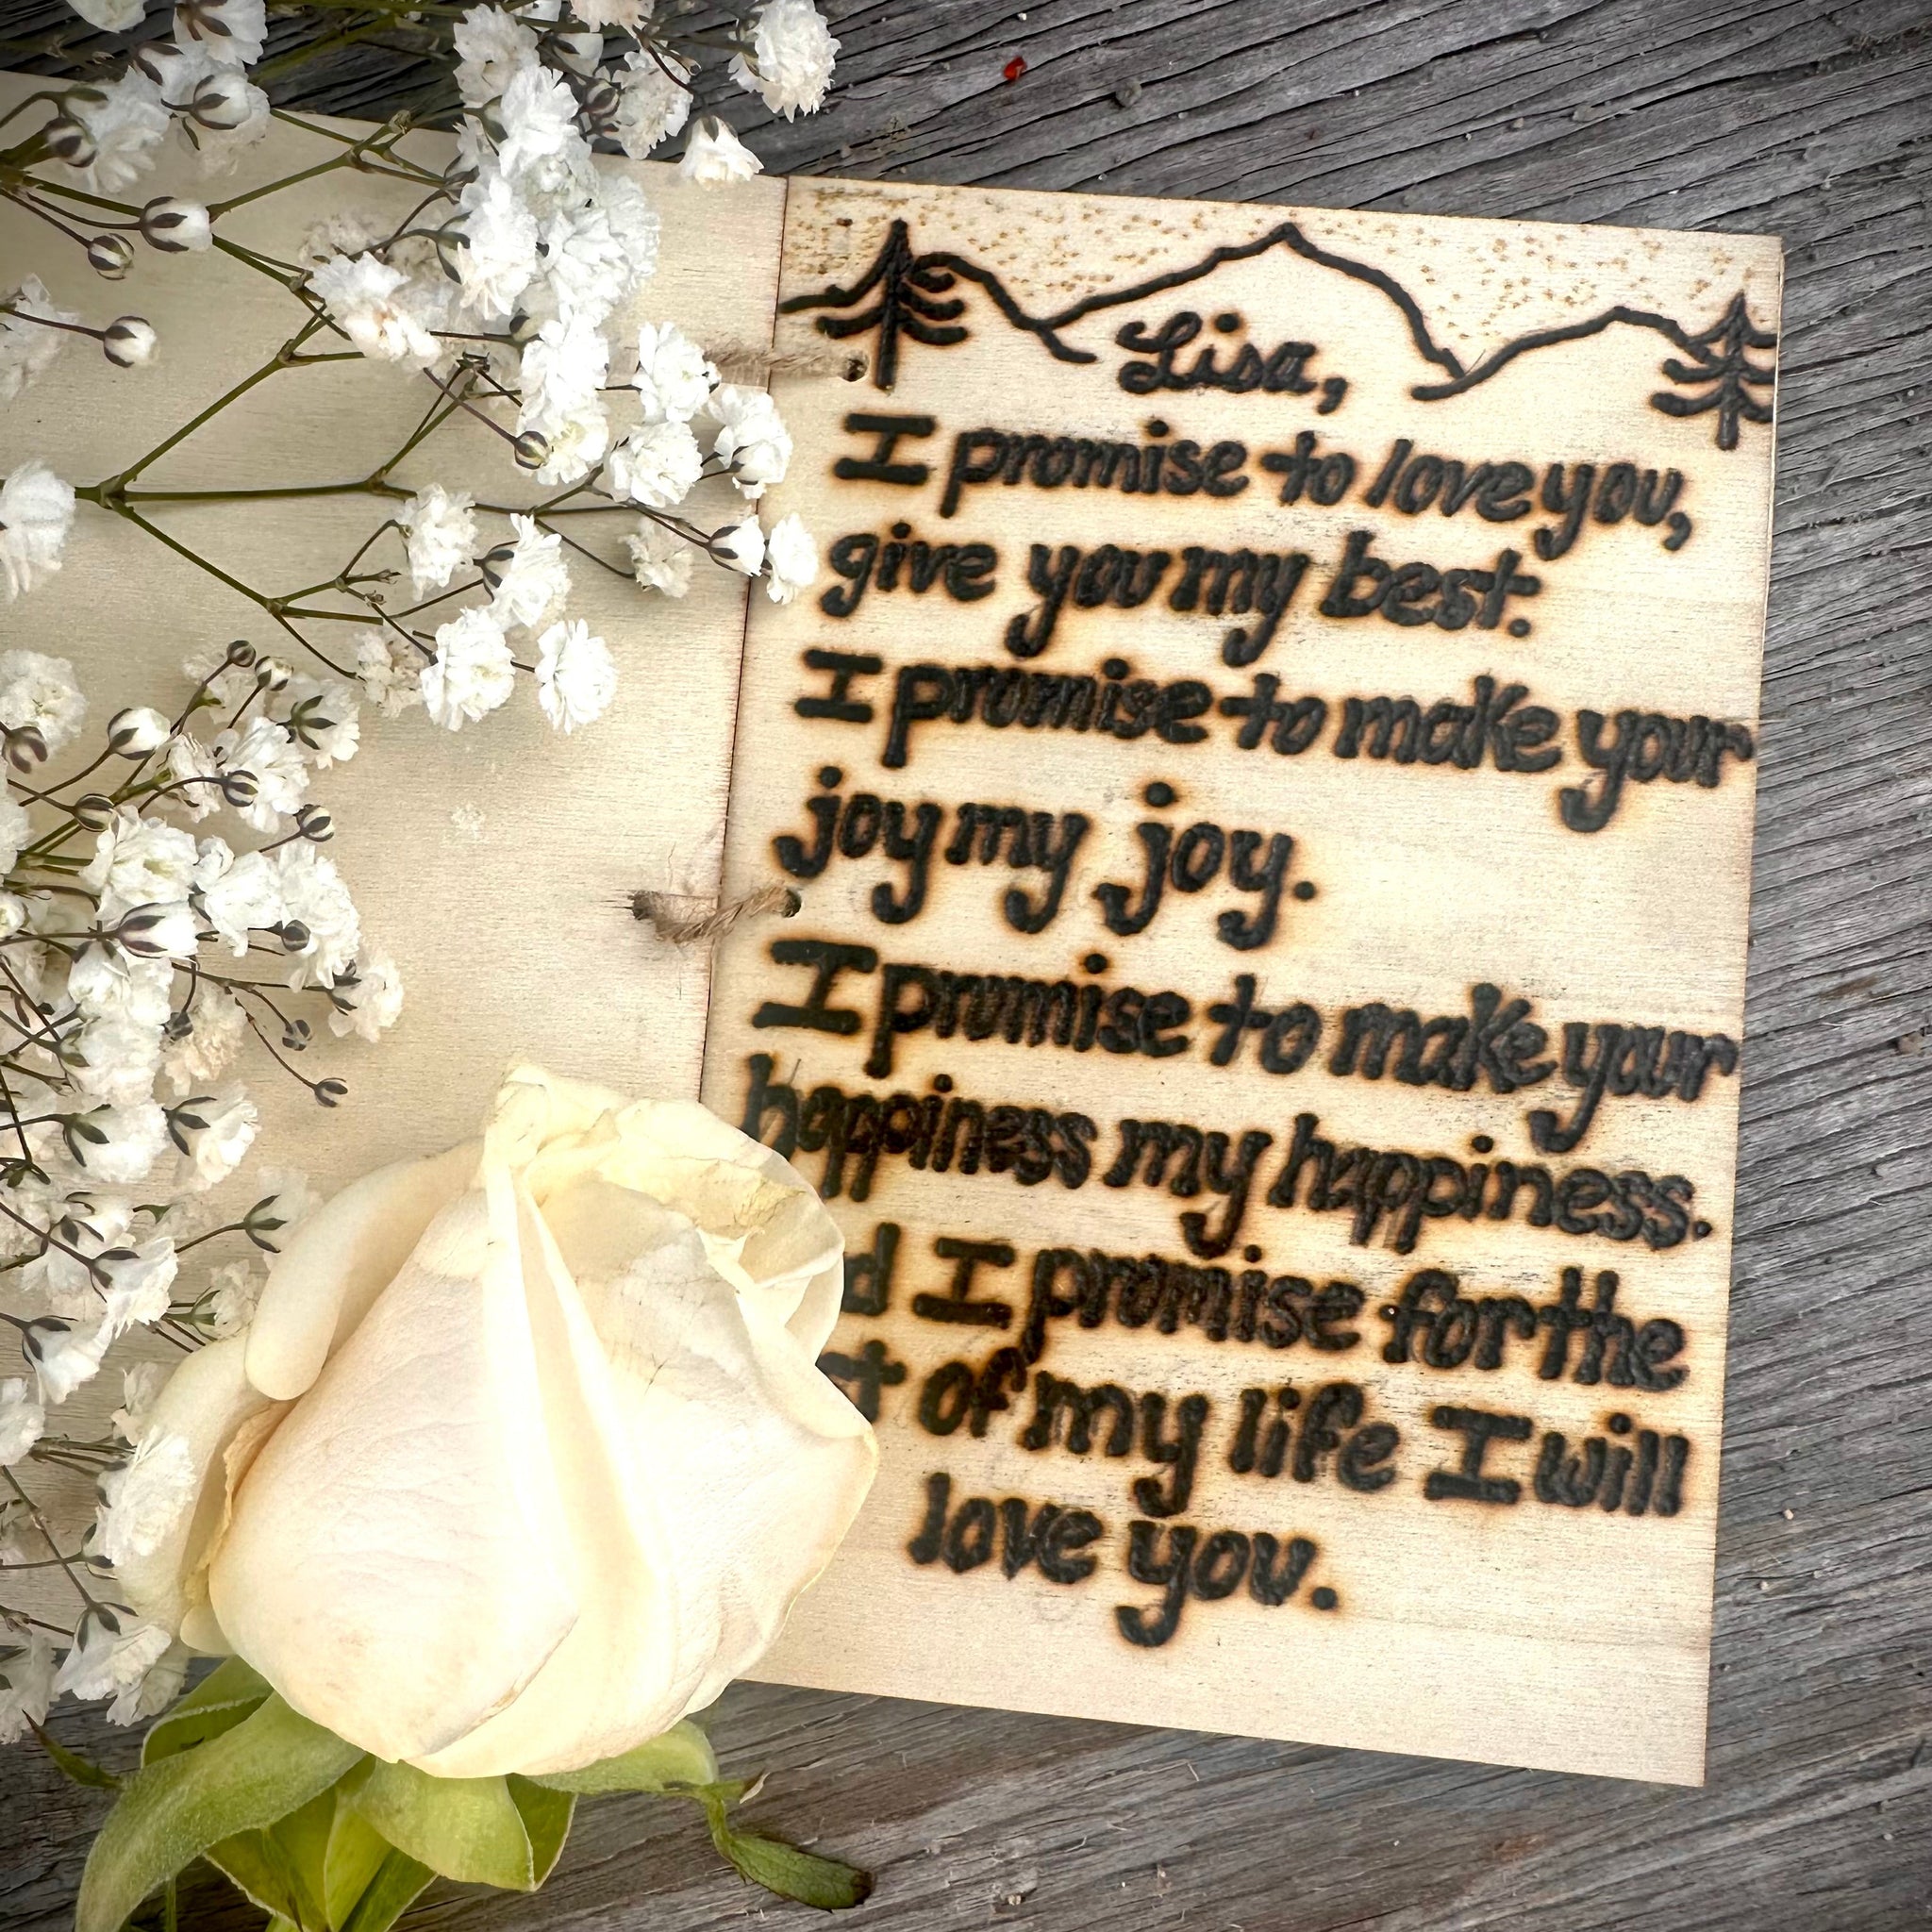 Lisa,
I promise to love you,
give you my best.
I promise to make your
joy my joy.
I promise to make your
happiness my happiness.
I promise for the
of my life I will
love you.